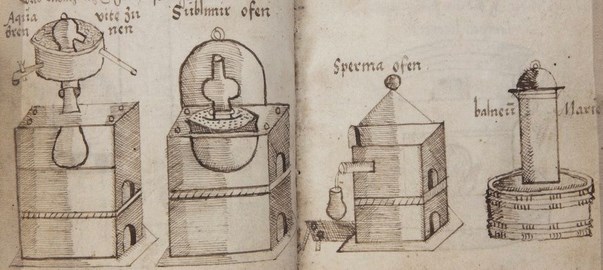 Aqua vite zu
bren nen
Sublimir ofen
Sperma ofen
balneum Marie